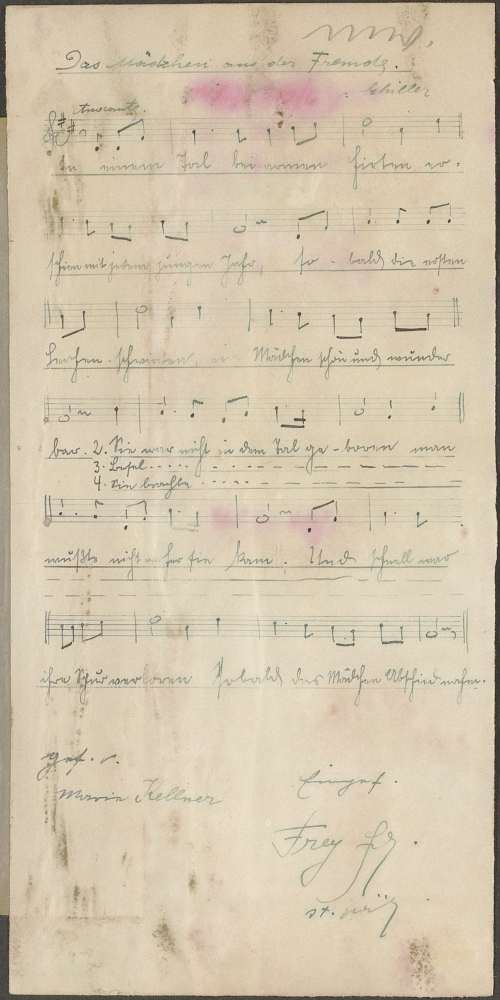 Das Mädchen aus der Fremde.
: Schiller
In einem Tal bei armen Hirten er-
schien mit jedem jungen Jahr, so - bald die ersten
Lerchen schwirrten, ein Mädchen schön und wunder
bar. 2. Sie war nicht in dem Tal ge - boren man
3. Besel.....
4. Sie brachte ....
wußte nicht woher sie kam. Und schnell war
ihre Spur verloren Sobald das Mädchen Abschied nahm.
ges. v.
Marie Kellner
Einges.
Frey